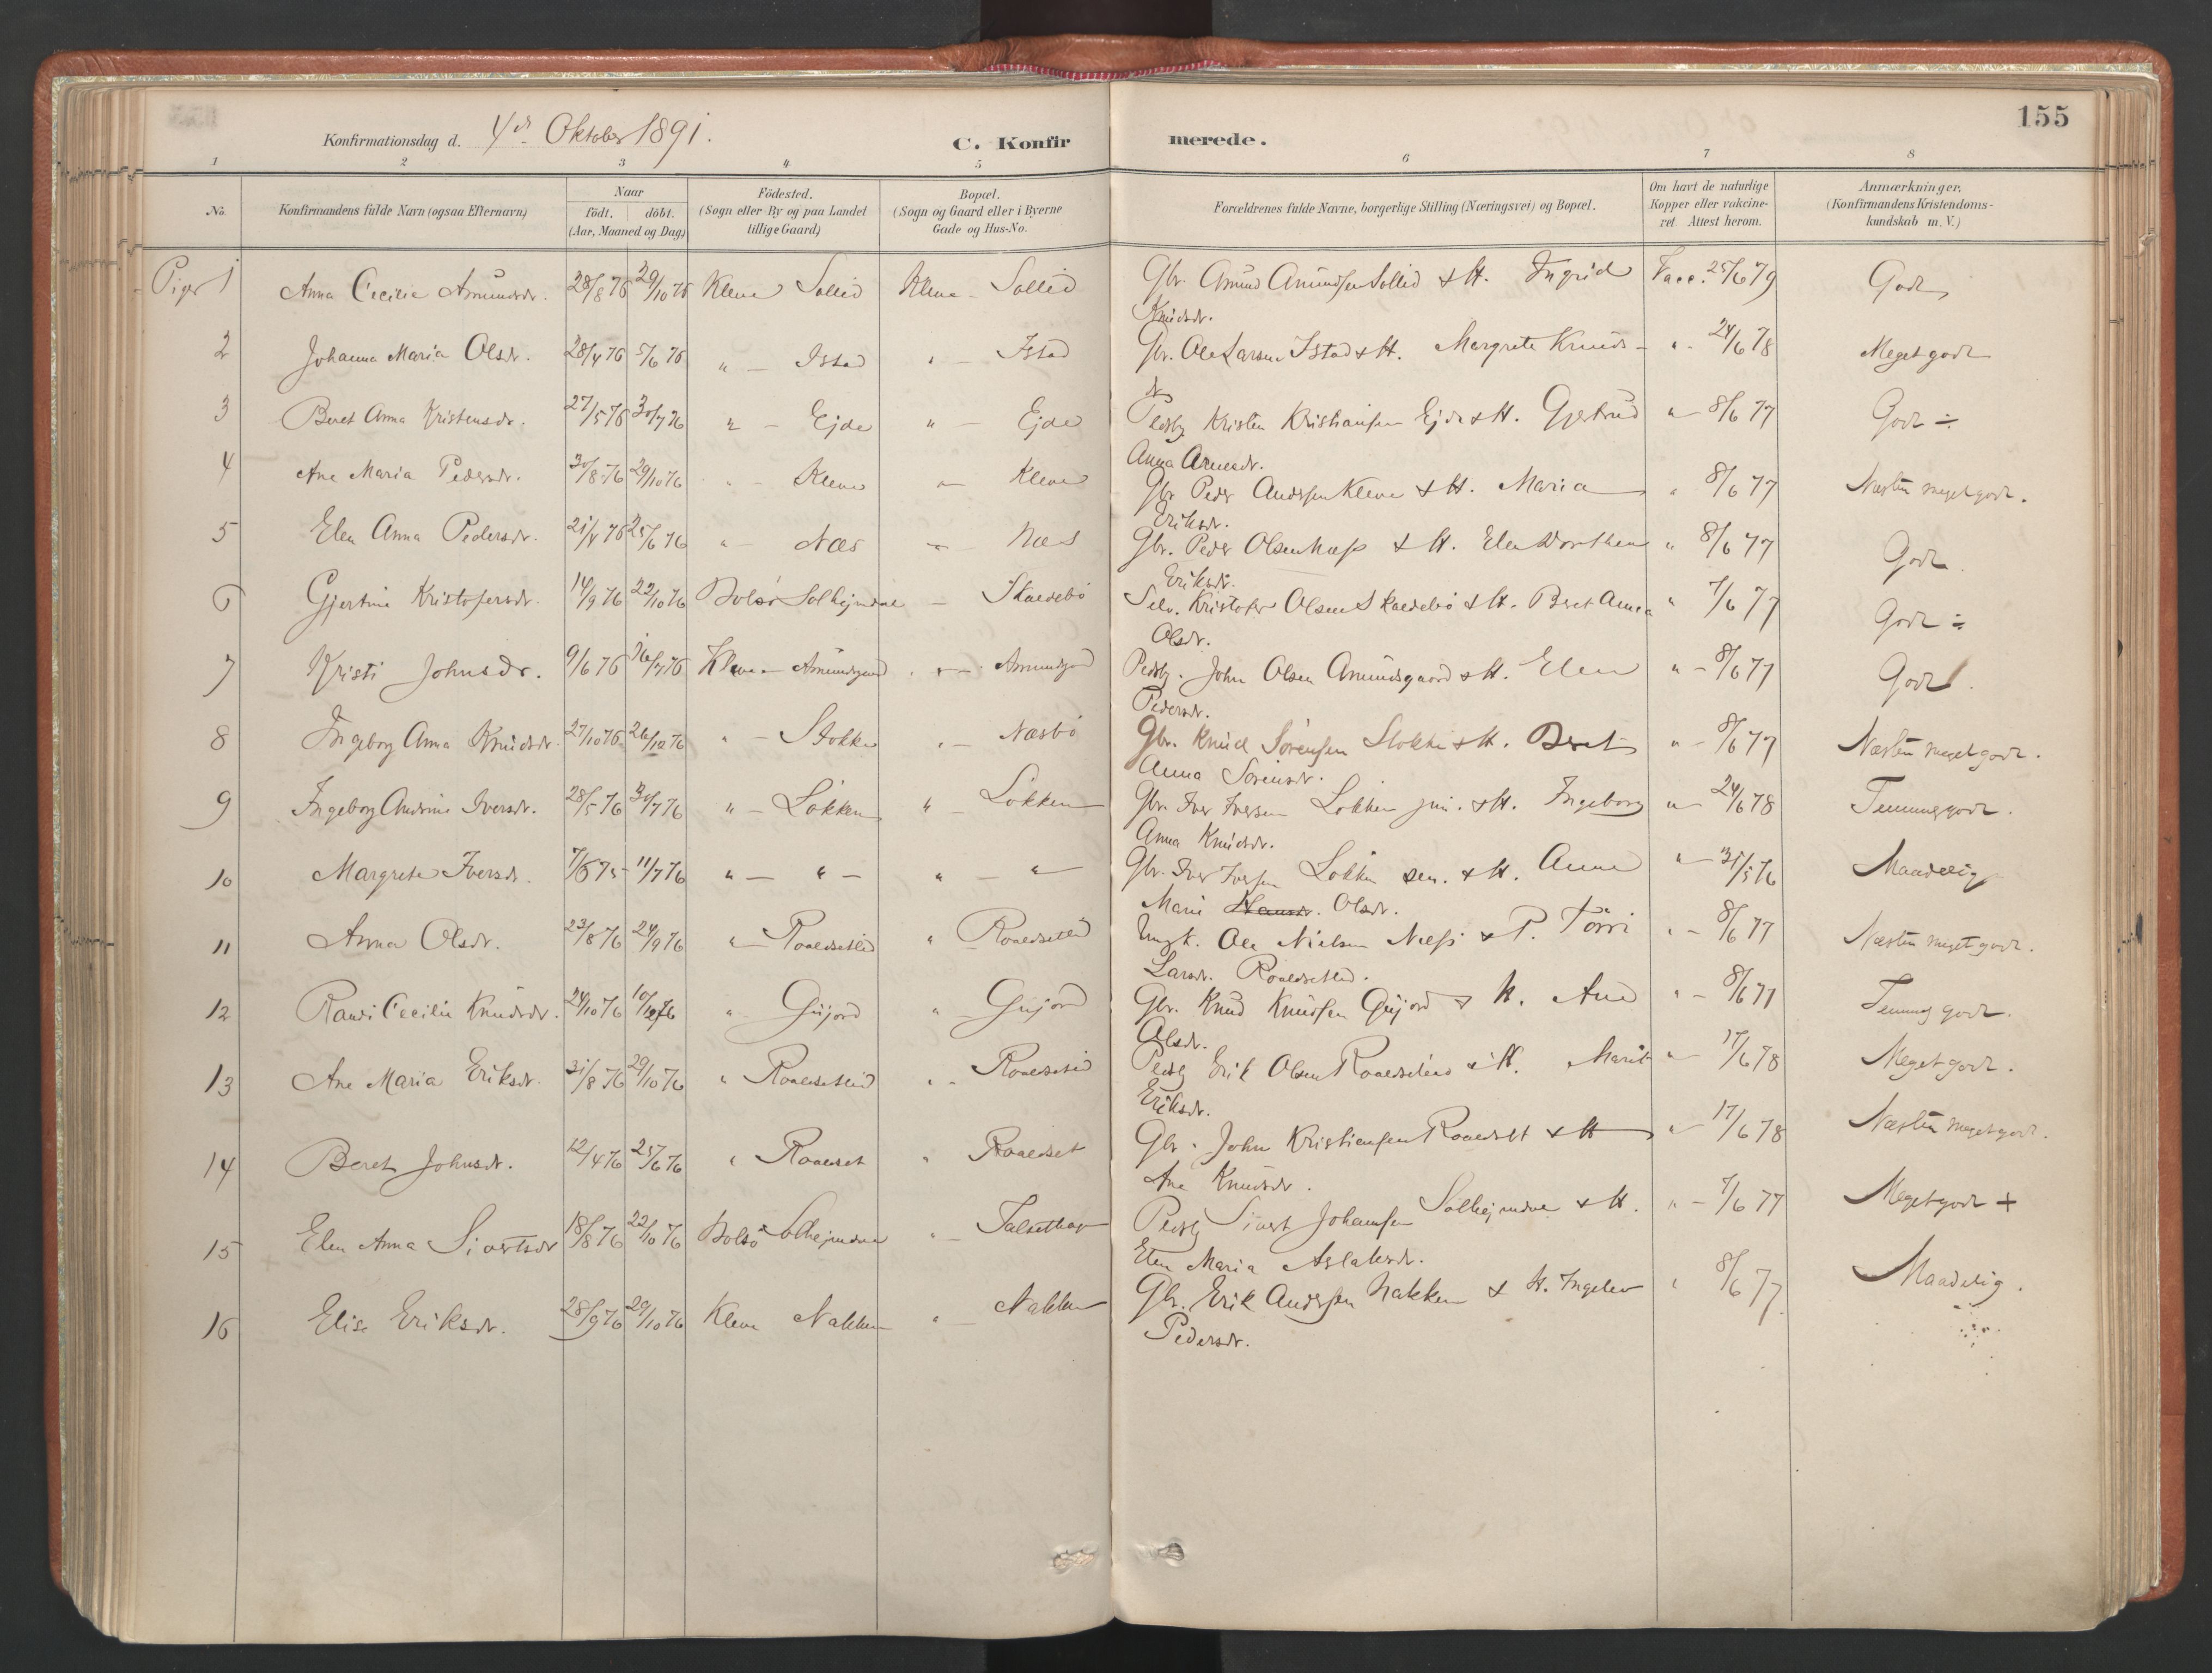 155
Konfirmationsdag d. 4de Oktober 1891.
C. Konfirmerede.
1 2 3 4 5 6 7 8
No.
Konfirmandens fulde Navn (ogsaa Efternavn)
Naar
födt. döbt.
(Aar, Maaned og Dag)
Födested.
(Sogn eller By og paa Landet
tillige Gaard)
Bopæl.
(Sogn og Gaard eller i Byerne
Gade og Hus-No.
Forældrenes fulde Navne, borgerlige Stilling (Næringsvei) og Bopæl.
Om havt de naturlige
Kopper eller vakcine-
ret. Attest herom.
Anmærkninger.
(Konfirmandens Kristendoms-
kundskab m. V.)
Piger 1 Anna Cecilie Amundsdr. 28/8 76 29/10 76 Kleve Sollid Kleve - Sollid Gbr. Amund Amundsen Sollid & H. Ingrid Vacc. 25/6 79 Godt
Knudsdr.
2 Johanna Maria Olsdr. 28/4 76 5/6 76 " - Istad " - Istad Gbr. Ole Larsen Istad & H. Margrete Knuds- " - 24/6 78 Meget godt
dr.
3 Beret Anna Kristensdr. 27/5 76 30/7 76 " - Ejde " - Ejde Pladsbg Kristen Kristiansen Ejde & H. Gjertrud " - 8/6 77 Godt ÷
Anna Arnesdr.
4 Ane Maria Pedersdr. 30/8 76 29/10 76 " - Kleve " - Kleve Gbr Peder Andersen Kleve & H. Maria " 8/6 77 Næsten meget godt.
Eriksdr.
5 Elen Anna Pedersdr. 21/4 76 25/6 76 " - Næs " - Næs Gbr. Peder Olsen Næss & H. Elen Dorthea " 8/6 77 Godt.
Eriksdr.
6 Gjertine Kristofersdr. 14/9 76 22/10 76 Bolsö Solhejmdal - Skaldebö Selv. Kristofer Olsen Skaldebö & H. Beret Anna " 7/6 77 Godt ÷
Olsdr.
7 Kristi Johnsdr. 9/6 76 16/7 76 Kleve - Amundsgaard " - Amundsgd Pladsbg. John Olsen Amundsgaard & H. Elen " - 8/6 77 Godt.
Pedersdr.
8 Ingeborg Anna Knudsdr. 27/10 76 26/12 76 " - Stokke " - Næsbö Gbr. Knud Sörensen Stokke & H. Beret " - 8/6 77 Næsten meget godt.
Anna Sörensdr.
9 Ingeborg Andrine Iversdr. 28/5 76 30/7 76 " - Lökken " - Lökken Gbr. Iver Iversen Lökken jun. & H. Ingeborg " - 24/6 78 Temmeg godt.
Anna Knudsdr.
10 Margrete Iversdr. 7/5 75 - 11/7 76 " - " - " - " Gbr. Iver Iversen Lökken sen. & H. Anne " - 31/5 76 Maadelig
Marie Hansdr. Olsdr.
11 Anna Olsdr. 23/8 76 24/9 76 " - Roaldsetlid " Roaldsetlid Ungk. Ole Nielsen Næss & P. Törri " - 8/6 77 Næsten meget godt.
Larsdr. Roaldsetlid.
12 Randi Cecilie Knudsdr. 24/10 76 10/12 76 " - Gujord " - Gujord Gbr. Knud Knudsen Gujord & H. Ane " - 8/6 77 Temmeg godt.
Olsdr.
13 Ane Maria Eriksdr. 31/8 76 29/10 76 " Roaldsetlid " - Roaldsetlid Pladsbg Erik Olsen Roaldsetlid & H. Marit " - 17/6 78 Meget godt.
Eriksdr.
14 Beret Johnsdr. 12/4 76 25/6 76 " Roaldset " Roaldset Gbr. John Kristiansen Roaldset & H " 17/6 78 Næsten meget godt.
Ane Knudsdr.
15 Elen Anna Sivertsdr 18/8 76 22/10 76 Bolsö Solhejmdal " - Talsethag Pladsbg Sivert Johansen Solhejmdal & H. " - 7/6 77 Meget godt +
Elen Maria Aslaksdr.
16 Elise Eriksdr. 28/9 76 29/10 76 Kleve Nakken " - Nakken Gbr. Erik Andersen Nakken & H. Ingelev " 8/6 77. Maadelig.
Pedersdr.